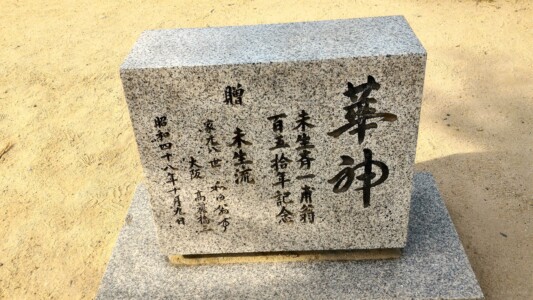 華神
未生斉一甫翁
百五拾年記念
贈 未生流
家元 世
大阪 高
昭和四十八年十月九日